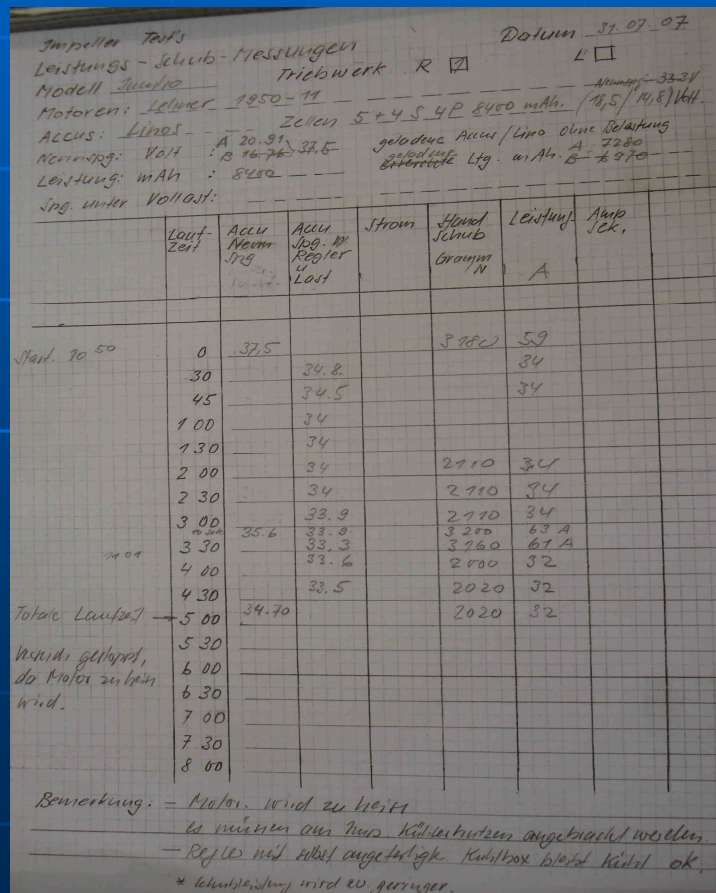 Impeller Test's
Datum 31.07.07
Leistungs-Schub-Messungen
Modell Jumbo Triebwerk R 1 L
Motoren: Lehner 1950-11
Nennspg 33.3V
Accus: Lipos Zellen 5+4 S 4P 8400 mAh. (18,5/14,8) Volt
Nennspg: Volt : A 20.91 B 16.76 37,5 geladene Accus/Lipo ohne Belastung
Leistung: mAh : 8400 geladene Ltg. mAh. A 7280 B 6970
Spg. unter Vollast:
Lauf-Zeit Accu Nenn Spg Accu Spg. Regler u Last Strom Stand Schub Gramm N Leistung A Amp Sek.
Start. 10 50 0 37,5 3180 59
30 34.8. 34
45 34.5 34
1 00 34
1 30 34
2 00 34 2110 34
2 30 34 2110 34
3 00 33.9 2110 34
10 Sek 35.6 33.9 3200 63 A
3 30 33.3 3160 61 A
11 01
4 00 33.6 2000 32
4 30 33.5 2020 32
Totale Laufzeit → 5 00 34.70 2020 32
5 30
gestoppt,
6 00
da Motor zu heiss
6 30
wird.
7 00
7 30
8 00
Bemerkung: - Motor. wird zu heiss
es müssen am Imp Kühlerhutzen angebracht werden
- Regler mit selbst angefertigte Kühlbox bleibt Kühl ok.
* Schubleistung wird zu. geringer.